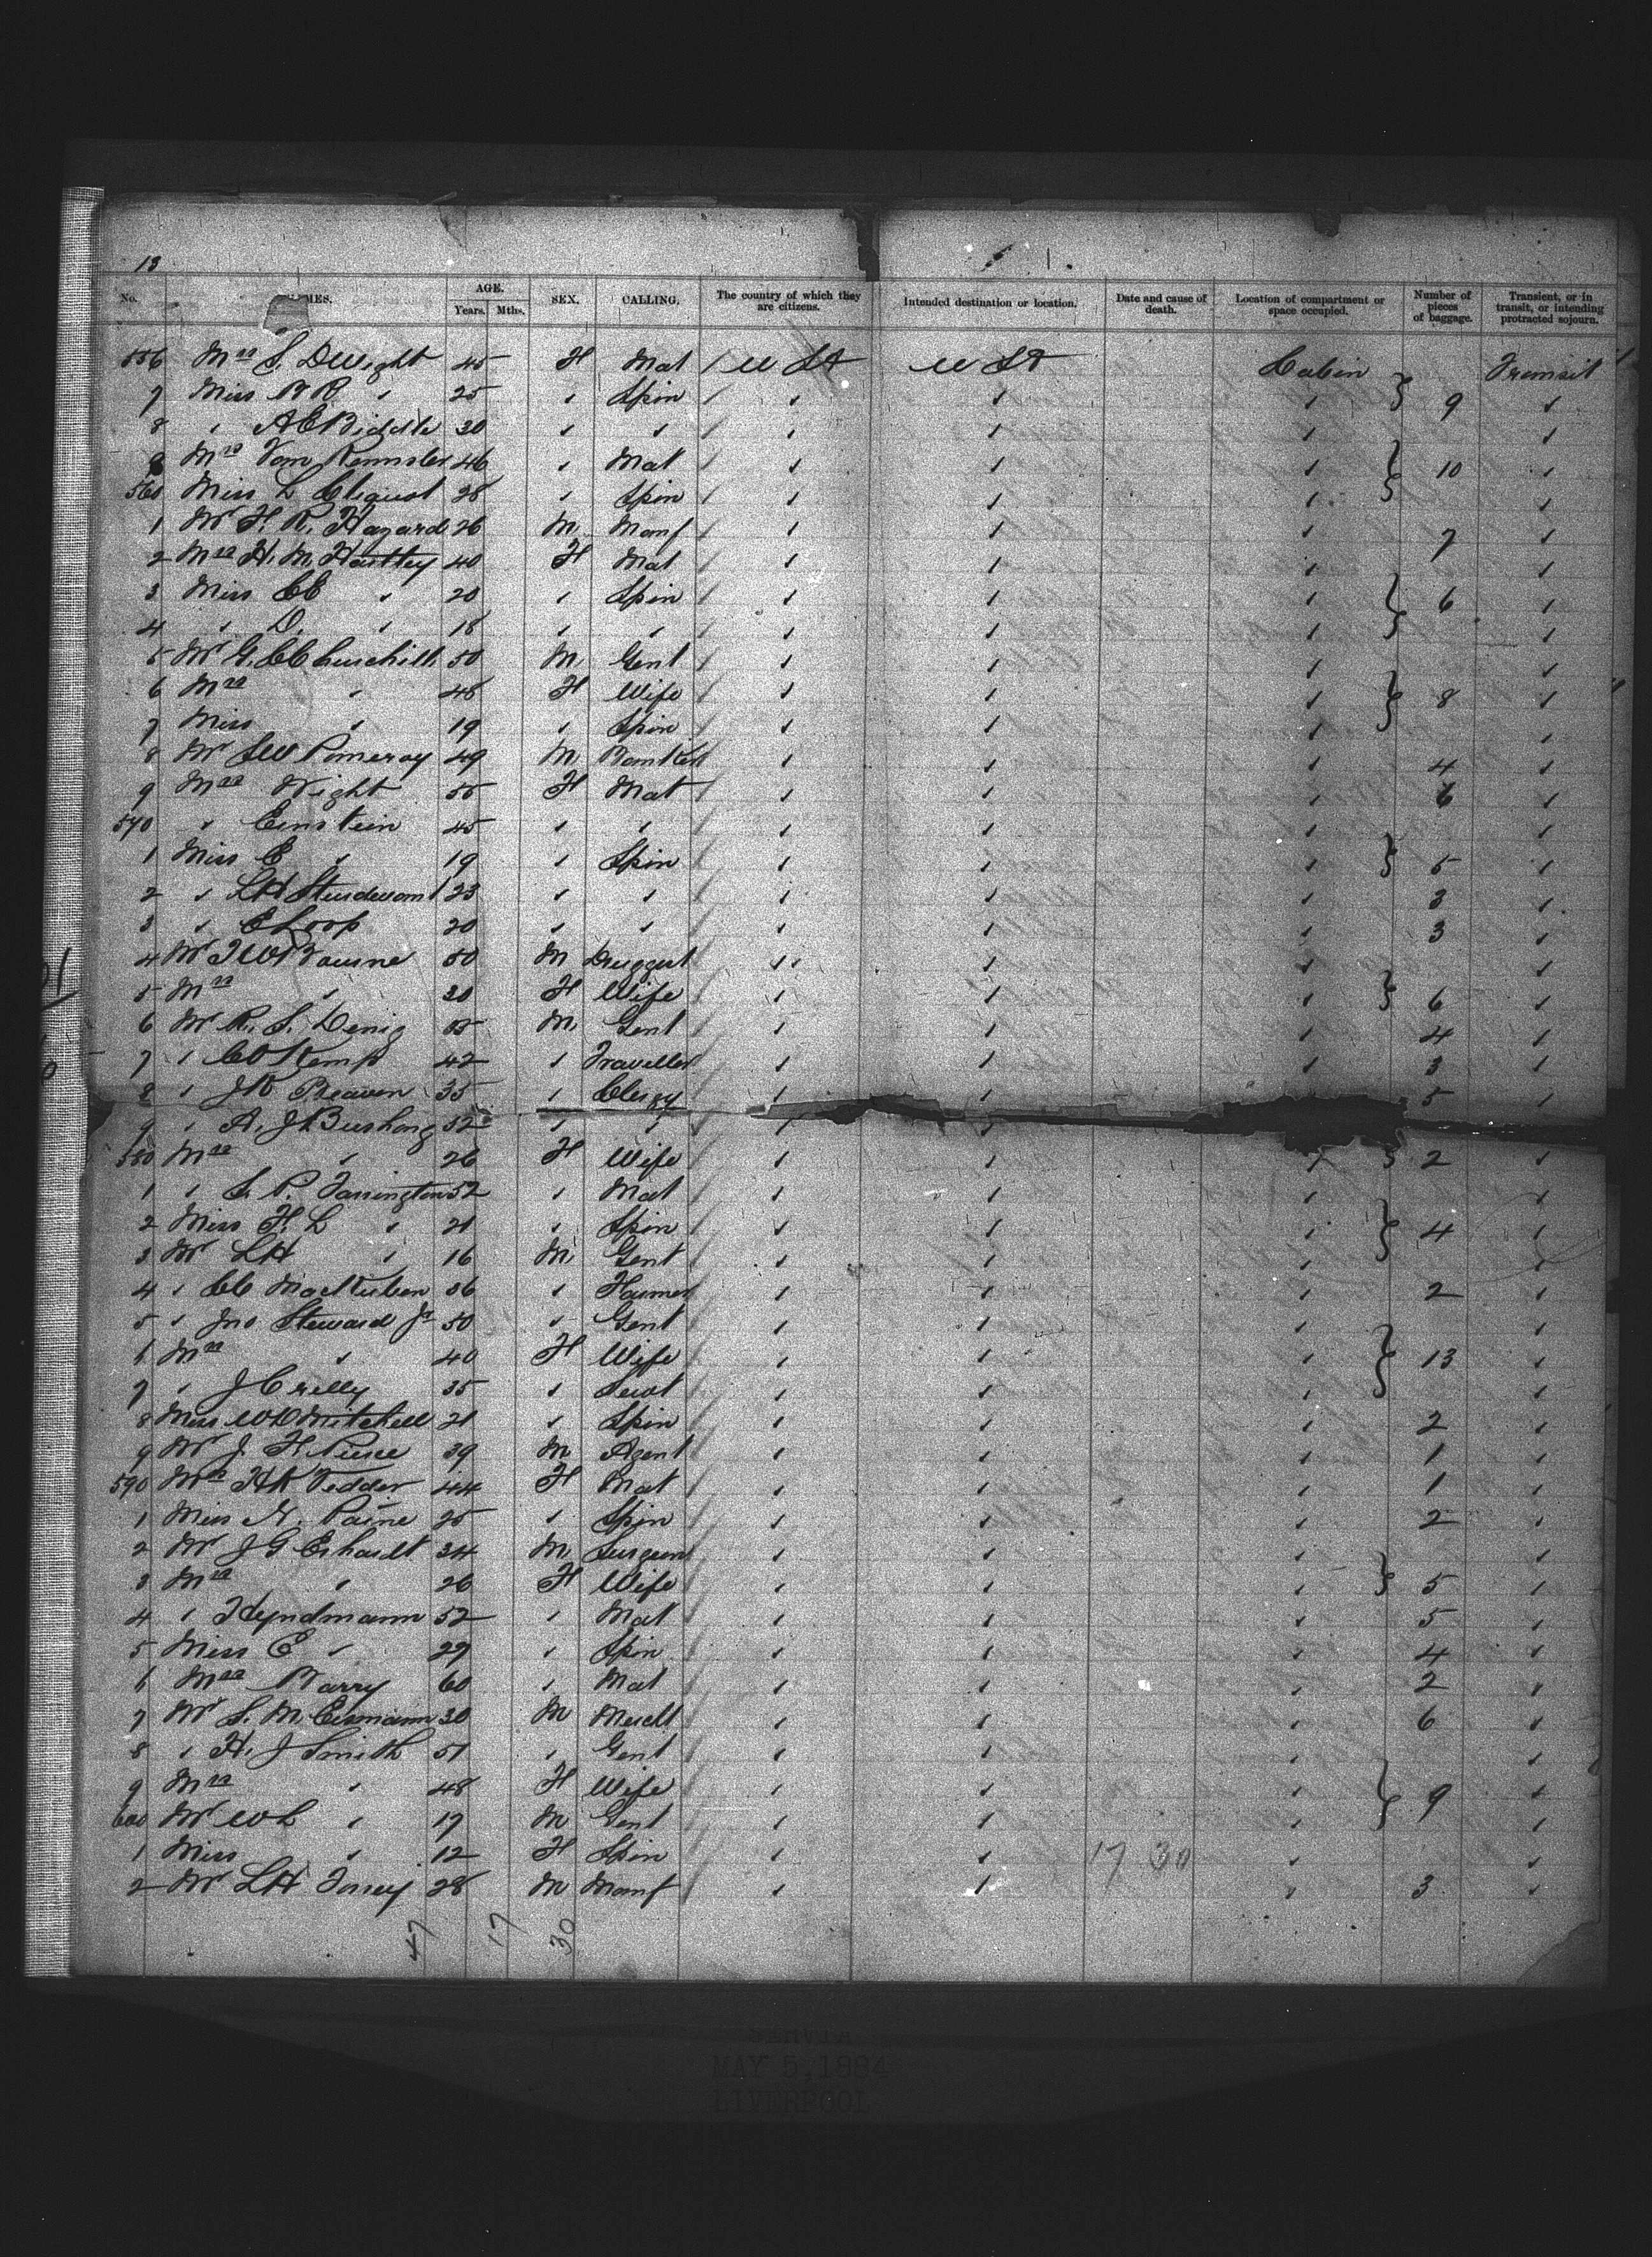 13
No. NAMES. AGE. SEX. CALLING. The country of which they are citizens. Intended destination or location. Date and cause of death. Location of compartment or space occupied. Number of pieces of baggage. Transient, or in transit, or intending protracted sojourn.
Years. Mths.
556 Mrs S. Dwight 45 F Mat U St U St Cabin Transit
7 Miss 25 Spin 9
8 A E Biddle 30
9 Mrs 46 Mat 10
560 Miss L Cliquot 28 Spin
1 Mr F. R. Hazard 26 M Manf 7
2 Mrs H. M. Hartley 40 F Mat
3 Miss CC 20 Spin 6
4 D. 18
5 Mr G. C Churchill 50 M Gent
6 Mrs 48 F Wife 8
7 Miss 19 Spin
8 Mr S W Pomeroy 49 M Banker 4
9 Mrs Wight 55 F Mat 6
570 Einstein 45
1 Miss E 19 Spin 5
2 L H Sturdevant 23 3
3 E Loop 20 3
4 Mr 50 M Druggist
5 Mrs 30 F Wife 6
6 Mr R. S. Denig M Gent 4
7 Kemp 42 Traveller 3
8 Beaven 35 Clergy 5
9 A. J Bushong 52
580 Mrs 26 F Wife 2
1 S. P. Farrington 52 Mat
2 Miss F. L 21 Spin 4
3 Mr L H 16 M Gent
4 CC 36 Farmer 2
5 Jno Steward Jr 50 Gent
6 Mrs 40 F Wife 13
7 J Crilly 35 Servt
8 Miss Mitchell 21 Spin 2
9 Mr J. H. 39 M Agent 1
590 Mrs Vedder 44 F Mat 1
1 Miss N. Paine 25 Spin 2
2 Mr J G Erhardt 34 M Surgeon
3 Mrs 26 F Wife 5
4 Hyndmann 52 Mat 5
5 Miss E 29 Spin 4
6 Mrs Barry 60 Mat 2
7 Mr S. M. Eismann 30 M Mercht 6
8 H. J Smith 51 Gent
9 Mrs 48 F Wife 9
600 Mr W L 17 M Gent
1 Miss 12 F Spin 17 30
2 Mr L H 28 M Manf 3
47 17 30
MAY 5, 1884
LIVERPOOL